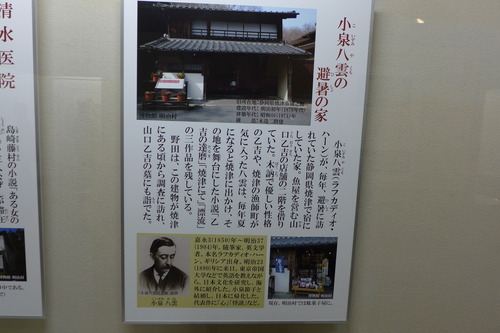 小泉八雲の
避暑の家
小泉八雲(ラフカディオ・
ハーン)が、毎年、避暑に訪
れていた静岡県焼津で宿に
していた家。魚屋を営む山
口乙吉の店舗の二階を借り
ていた。木訥で優しい性格
の乙吉や、焼津の漁師町が
気に入った八雲は、毎年夏
になると焼津に出かけ、そ
の地を舞台にした小説、「乙
吉の達磨」「焼津にて」「漂流」
の三作品を残している。
野田は、この建物が焼津
にある頃から調査に訪れ、
山口乙吉の墓にも詣でた。
嘉永3(1850)年~明治37
(1904)年。随筆家、英文学
者。本名ラフカディオ・ハー
ン。ギリシア出身。明治23
(1890)年に来日。東京帝国
大学などで英語を教えなが
ら、日本文化を研究し、海
外に紹介した。小泉節子と
結婚し、日本に帰化した。
代表作に「心」「怪談」など。
小泉 八雲
現在、明治村では駄菓子屋に。
清水医院
島崎藤村の小説「ある女の